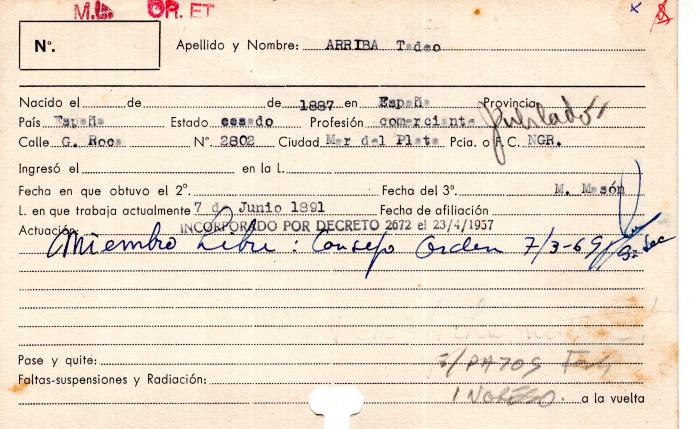 M.L. OR. ET
x
Nº.
Apellido y Nombre: ARRIBA Tadeo
Nacido el de de 1887 en España Provincia
País España Estado casado Profesión comerciante jubilado
Calle G. Roca Nº. 2802 Ciudad Mar del Plata Pcia. o F. C. NGR.
Ingresó el en la L.
Fecha en que obtuvo el 2º. Fecha del 3º. M. Masón
L. en que trabaja actualmente 7 de Junio 1891 Fecha de afiliación
Actuación: INCORPORADO POR DECRETO 2672 el 23/4/1957
Miembro Libre: Consejo Orden 7/3-69
Pase y quite: S/DATOS
Faltas-suspensiones y Radiación: INGRESO. a la vuelta